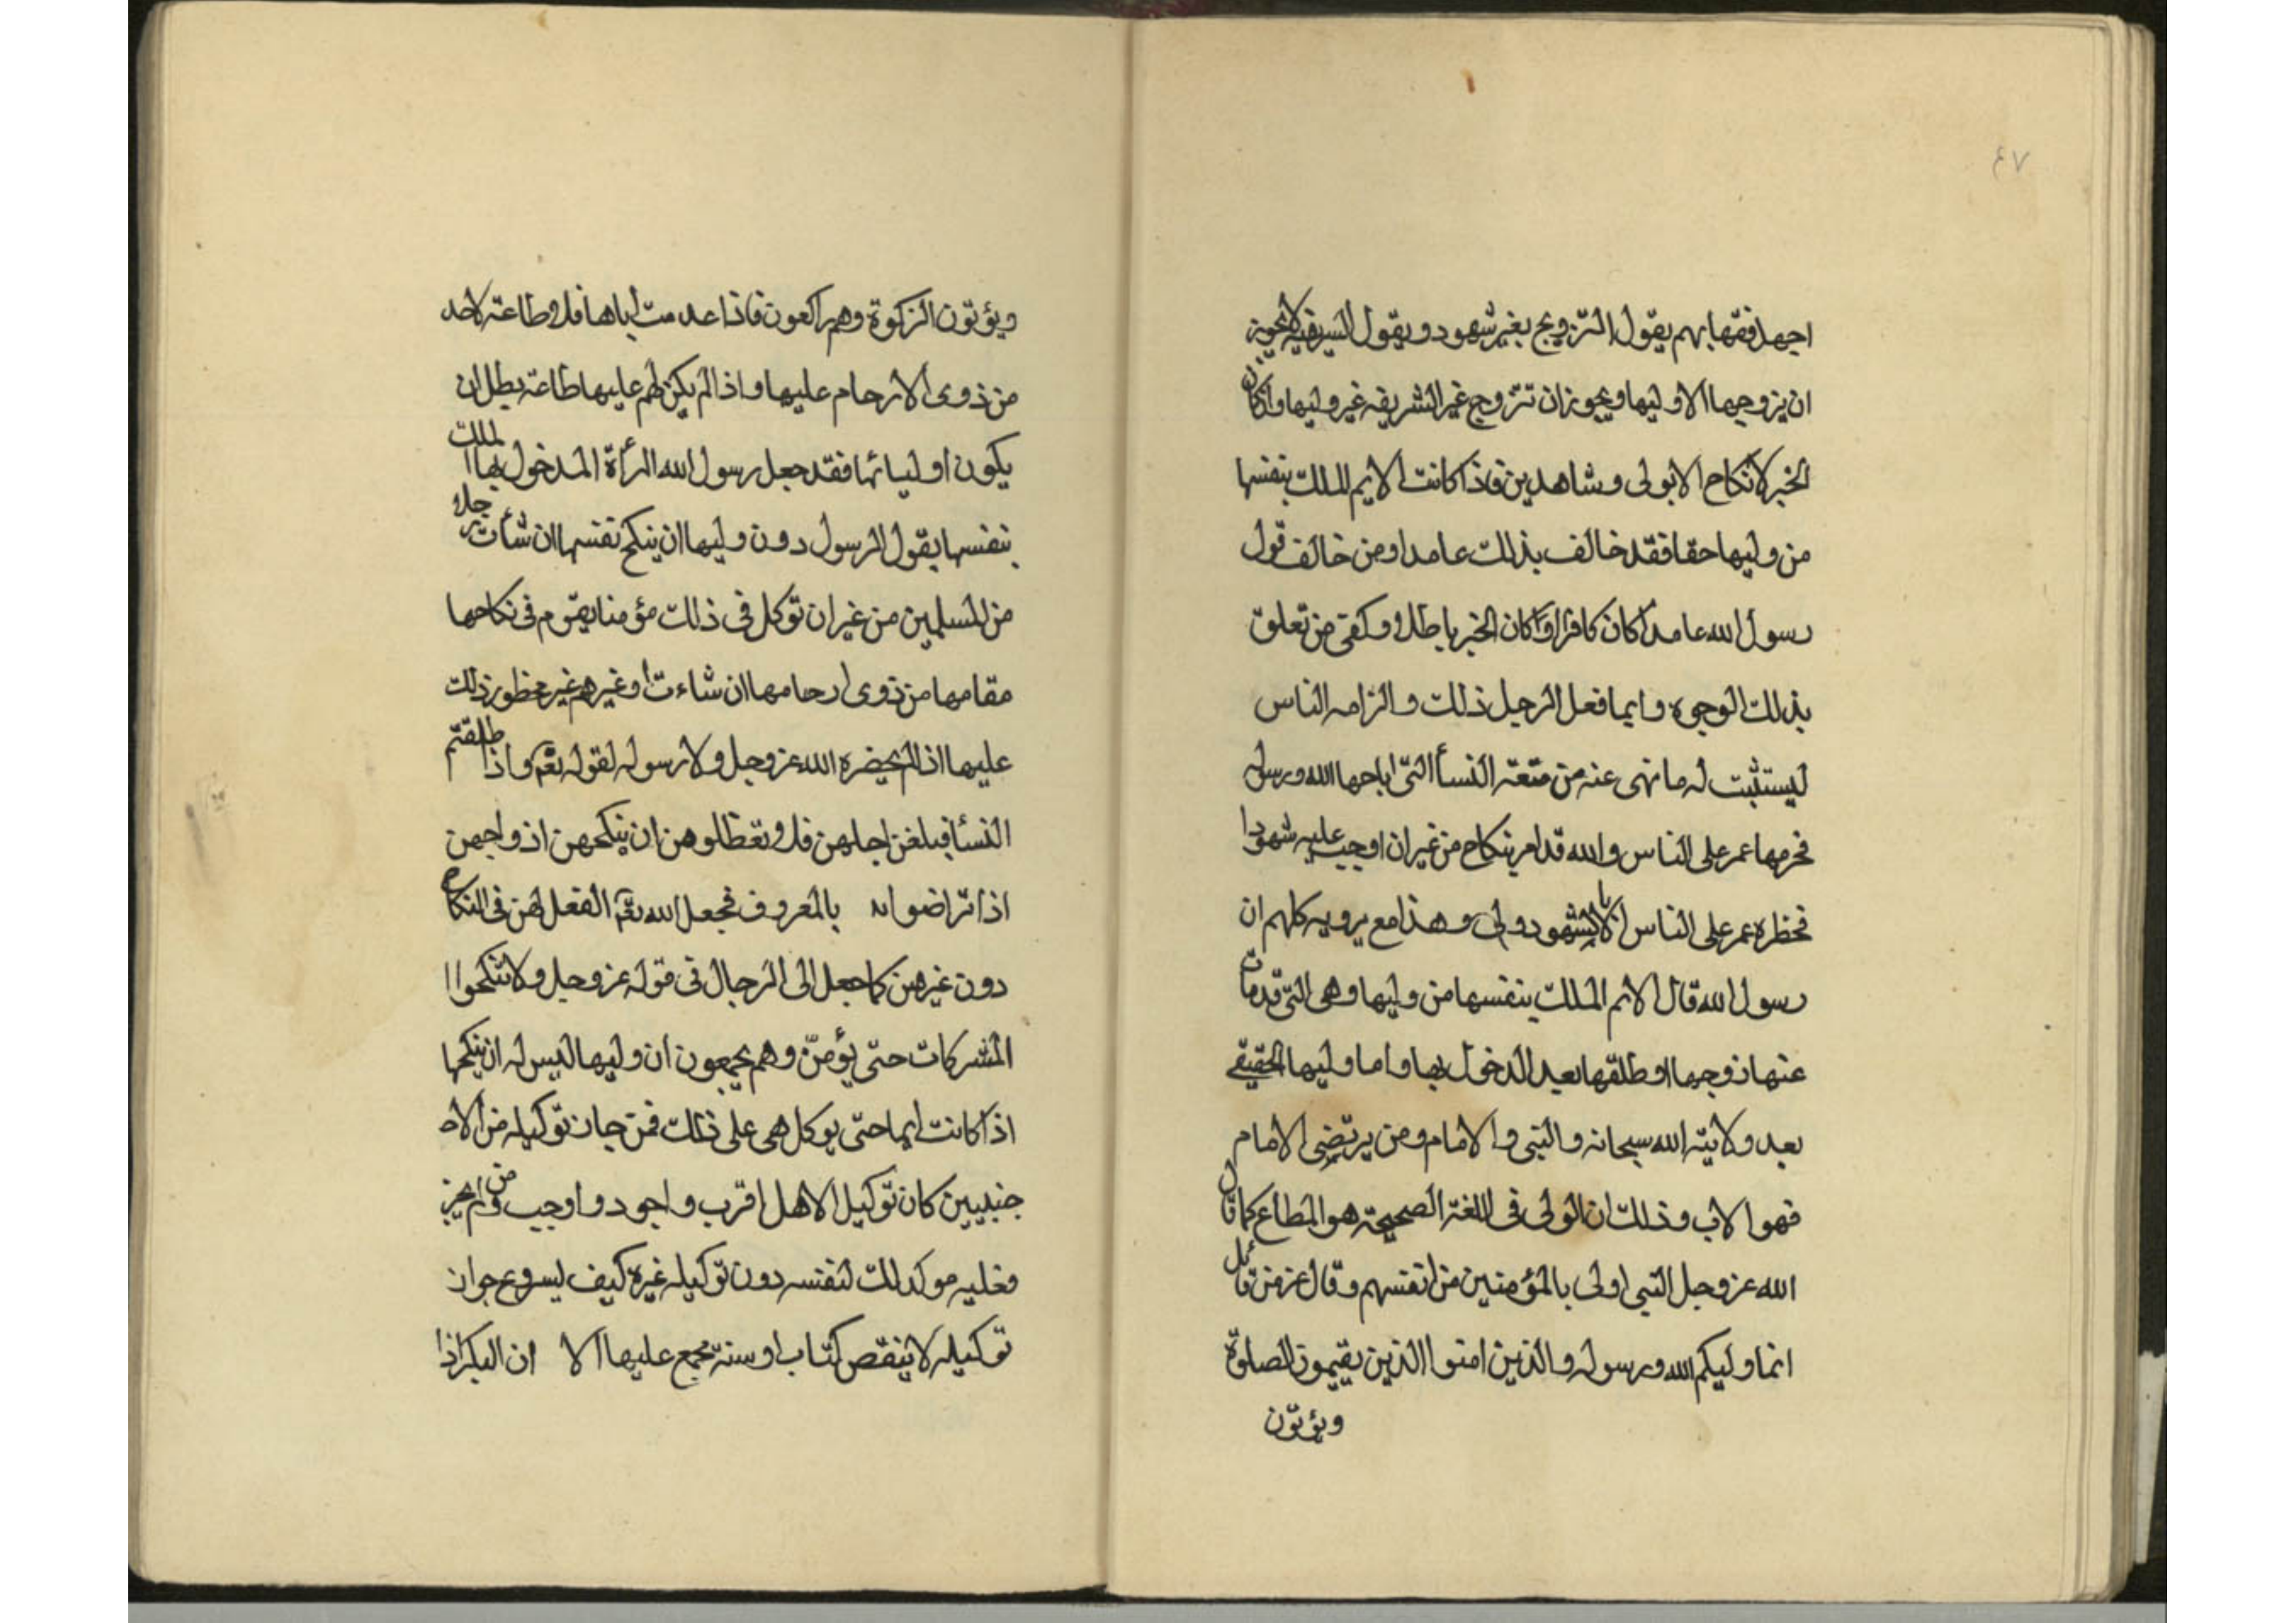 ٤٧
اجهل فقهابهم يقول التزويج بغير شهود ويقول الشريفه لايجوز
ان يزوجها الا وليها ويجوز ان تتزوج غير الشريفه غير وليها وان كان
الخبر لانكاح الا بولى وشاهدين فاذا كانت الايم املك بنفسها
من وليها حقا فقد خالف بذلك عامدا ومن خالف قول
رسول الله عامدا كان كافرا وان كان الخبر باطلا وكفى من تعلق
بذلك الوجوه وايما فعل الرجل ذلك والزامه الناس
ليستثبت له ما نهى عنه من متعة النسأ التى اباحها الله ورسوله
فحرمها عمر على الناس والله قد امر بنكاح من غير ان اوجب عليه شهودا
فحظره عمر على الناس الا بالشهود ولى وهذا مع يرويه كلهم ان
رسول الله قال الايم املك بنفسها من وليها وهى التى قد مات
عنها زوجها او طلقها بعد الدخول بها واما وليها الحقيقى
بعد ولاية الله سبحانه والنبى والامام ومن يرتضى الامام
فهو الاب وذلك ان الولى فى اللغة الصحيحة هو المطاع كما قال
الله عز وجل النبى اولى بالمؤمنين من انفسهم وقال عز من قائل
انما وليكم الله ورسوله والذين امنوا الذين يقيمون الصلوة
ويؤتون
ويؤتون الزكوة وهم راكعون فاذا عدمت اباها فلا طاعة لاحد
من ذوى الارحام عليها واذا لم يكن لهم عليها طاعة بطل ان
يكون اوليائها فقد جعل رسول الله المرأة المدخول بها املك
بنفسها بقول الرسول دون وليها ان ينكح نفسها ان شأت رجلا
من المسلمين من غير ان توكل فى ذلك مؤمنا يقوم فى نكاحها
مقامها من ذوى ارحامها ان شاءت او غيرهم غير محظور ذلك
عليها اذ لم يحضره الله عز وجل ولا رسوله لقوله تعم واذا طلقتم
النسأ فبلغن اجلهن فلا تعظلوهن ان ينكحهن ازواجهن
اذا تراضوا بالمعروف فجعل الله تعم الفعل لهن فى النكاح
دون غيرهن كما جعل الى الرجال فى قوله عز وجل ولا تنكحوا ا
المشركات حتى يؤمن وهم يجمعون ان وليها ليس له ان ينكحها
اذا كانت ايما حتى يوكل هى على ذلك فمن جاز توكيله من الا
جنبيين كان توكيل الاهل اقرب واجود واوجب ومن لم يجز
فعليه موكد لك لنفسه دون توكيله غيره كيف يسوع جواز
توكيله لا ينقص كتاب او سنة مجمع عليها الا ان البكر اذا